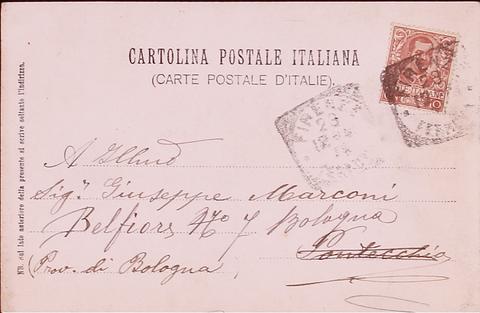 CARTOLINA POSTALE ITALIANA
(CARTE POSTALE D'ITALIE).
NB. sul lato anteriore della presente si scrive soltanto l'indirizzo.
FIRENZE
FIRENZE
10
A Illmo
Sigr. Giuseppe Marconi
Belfiore No 7 Bologna
Pontecchio
(Prov. di Bologna)